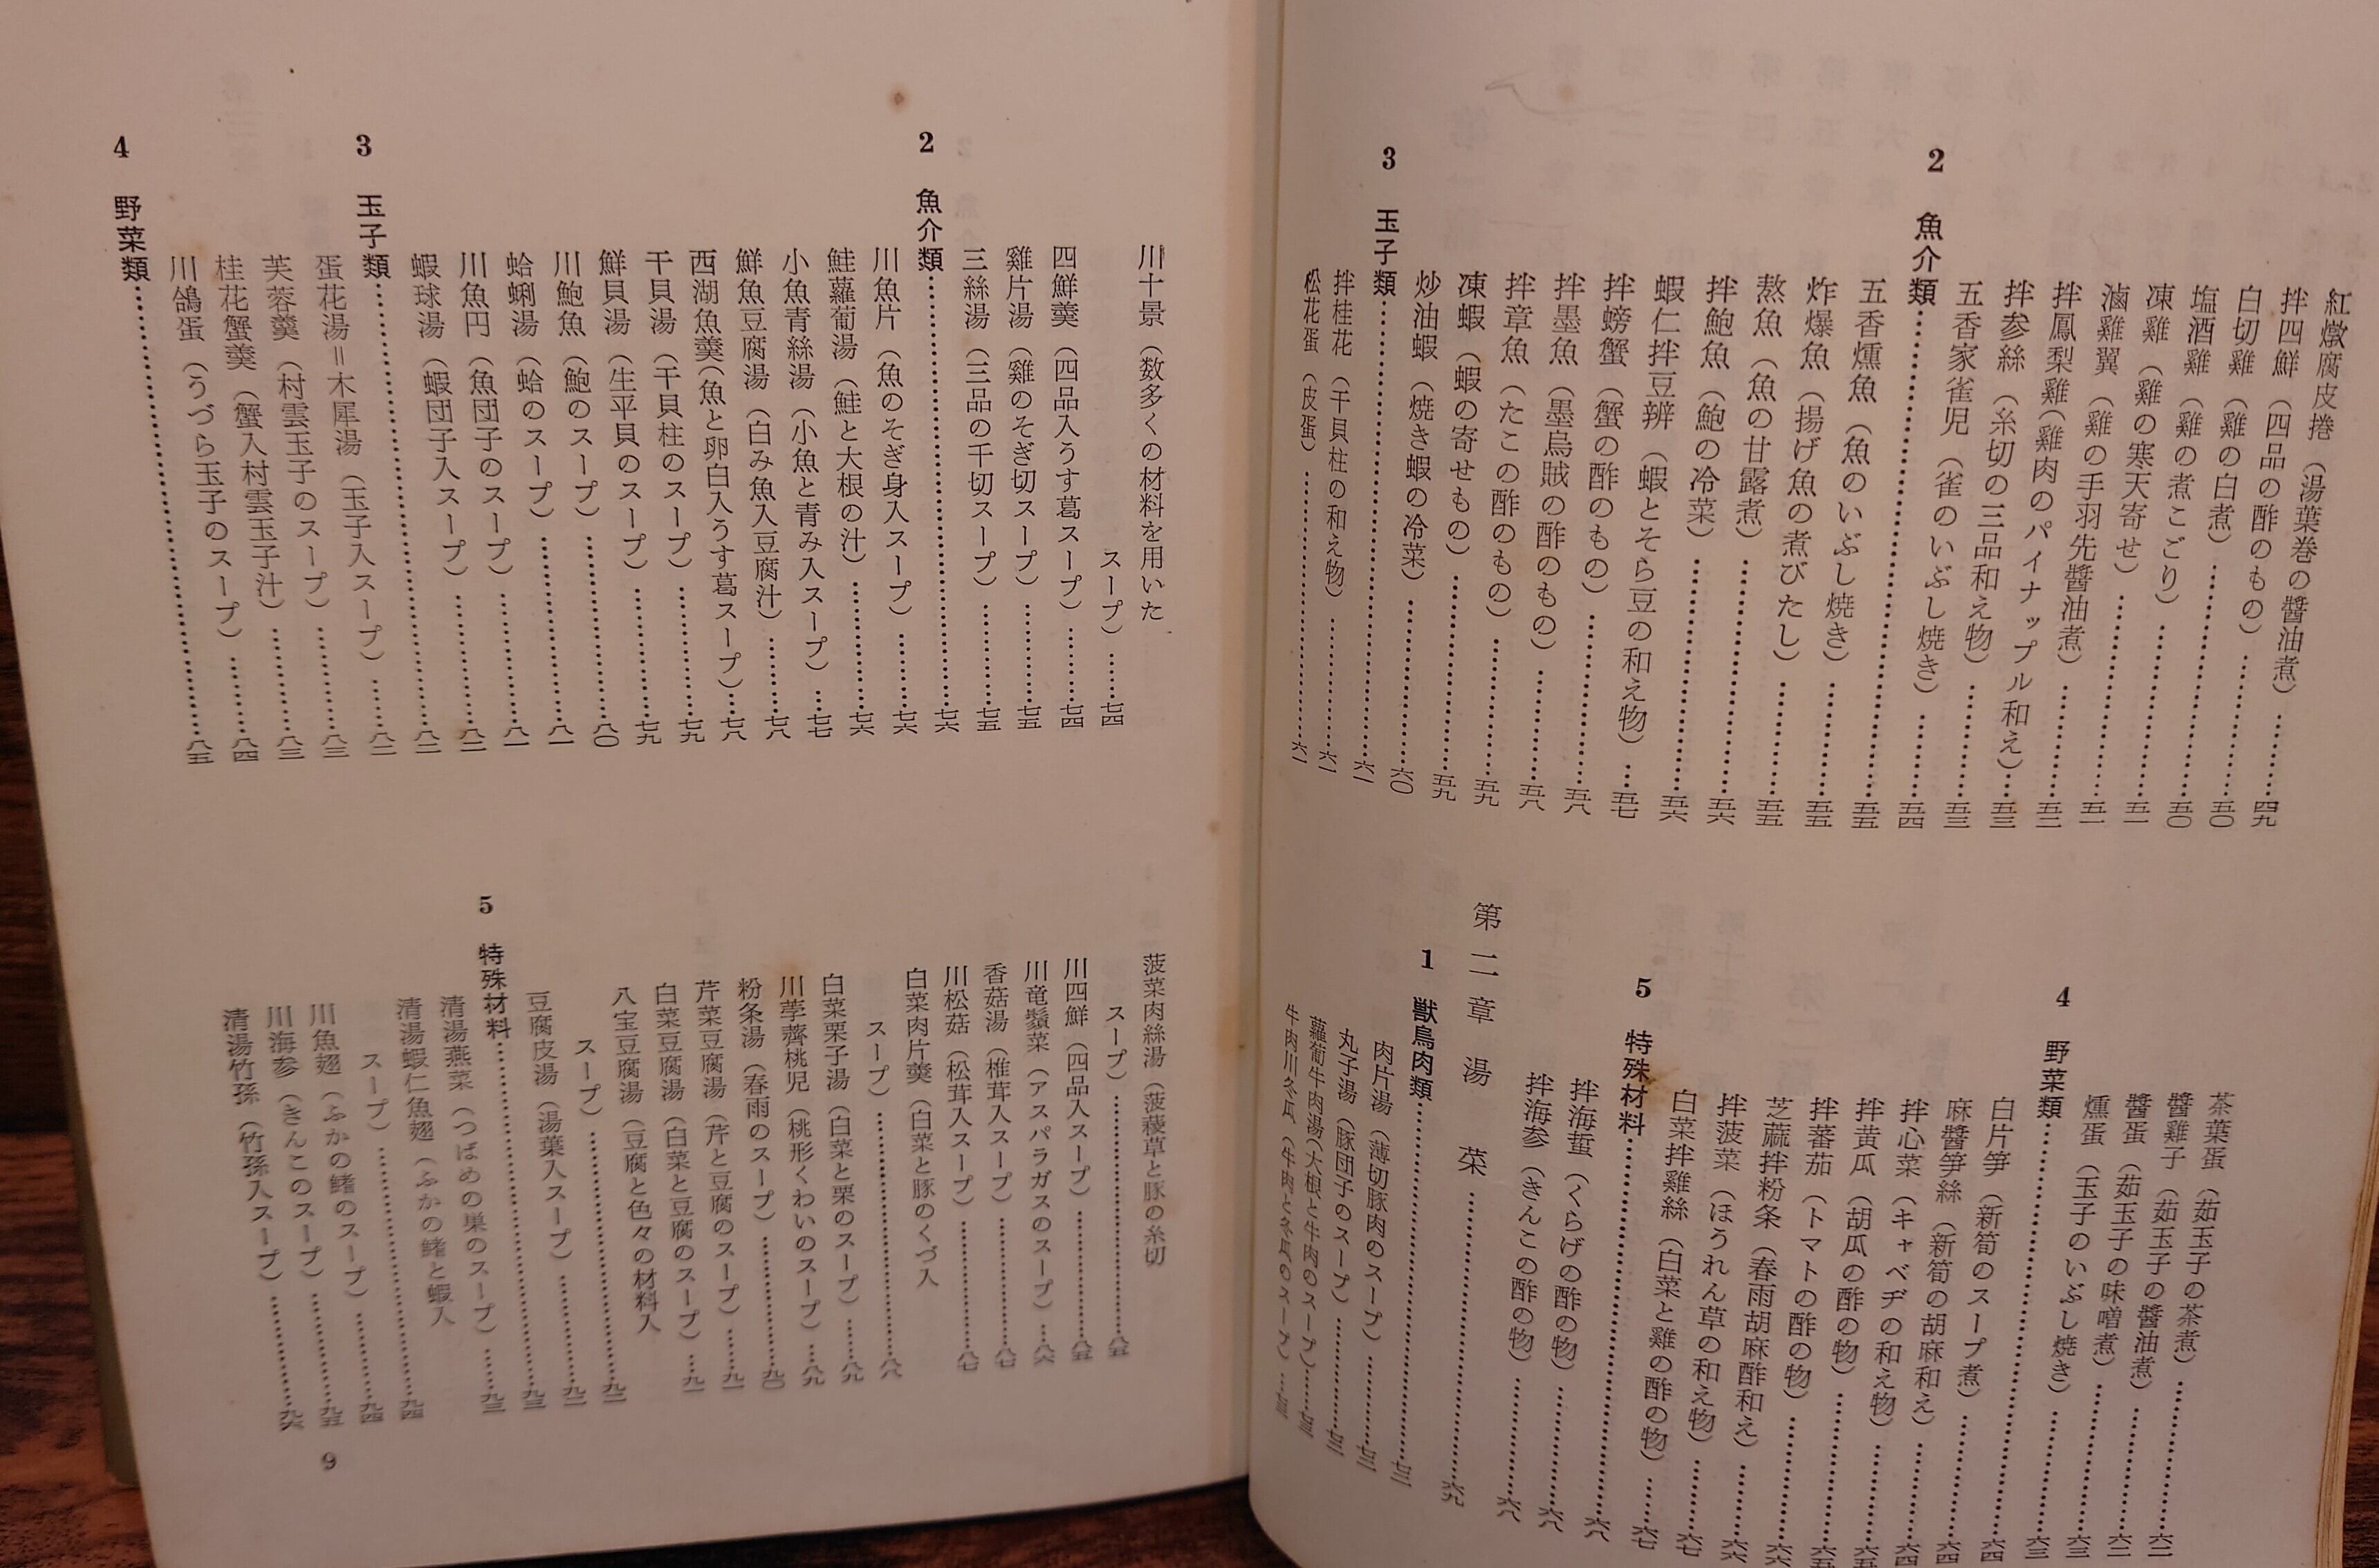 紅燉腐皮捲（湯葉巻の醬油煮）…………四九
拌四鮮（四品の酢のもの）…………五〇
白切雞（雞の白煮）…………五〇
塩酒雞（雞の煮こごり）…………五一
凍雞（雞の寒天寄せ）…………五一
滷雞翼（雞の手羽先醬油煮）…………五二
拌鳳梨雞（雞肉のパイナップル和え）…五三
拌参絲（糸切の三品和え物）…………五三
五香家雀児（雀のいぶし焼き）…………五四
2 魚介類…………五五
五香燻魚（魚のいぶし焼き）…………五五
炸爆魚（揚げ魚の煮びたし）…………五五
熬魚（魚の甘露煮）…………五六
拌鮑魚（鮑の冷菜）…………五六
蝦仁拌豆辨（蝦とそら豆の和え物）…五七
拌螃蟹（蟹の酢のもの）…………五八
拌墨魚（墨烏賊の酢のもの）…………五八
拌章魚（たこの酢のもの）…………五九
凍蝦（蝦の寄せもの）…………五九
炒油蝦（焼き蝦の冷菜）…………六〇
3 玉子類…………六一
拌桂花（干貝柱の和え物）…………六一
松花蛋（皮蛋）…………六一
茶葉蛋（茹玉子の茶煮）…………六二
醬雞子（茹玉子の醬油煮）…………六二
醬蛋（茹玉子の味噌煮）…………六三
燻蛋（玉子のいぶし焼き）…………六三
4 野菜類…………六四
白片笋（新筍のスープ煮）…………六四
麻醬笋絲（新筍の胡麻和え）…………六四
拌心菜（キャベヂの和え物）…………六五
拌黄瓜（胡瓜の酢の物）…………六五
拌蕃茄（トマトの酢の物）…………六六
芝蔴拌粉条（春雨胡麻酢和え）…………六六
拌菠菜（ほうれん草の和え物）…………六七
白菜拌雞絲（白菜と雞の酢の物）…………六七
5 特殊材料…………六八
拌海蜇（くらげの酢の物）…………六八
拌海参（きんこの酢の物）…………六八
第二章 湯菜…………六九
1 獣鳥肉類…………七二
肉片湯（薄切豚肉のスープ）…………七二
丸子湯（豚団子のスープ）…………七三
蘿蔔牛肉湯（大根と牛肉のスープ）……七三
牛肉川冬瓜（牛肉と冬瓜のスープ）…七三
川十景（数多くの材料を用いた
スープ）……七四
四鮮羹（四品入うす葛スープ）…………七四
雞片湯（雞のそぎ切スープ）…………七五
三絲湯（三品の千切スープ）…………七五
2 魚介類…………七六
川魚片（魚のそぎ身入スープ）…………七六
鮭蘿蔔湯（鮭と大根の汁）…………七六
小魚青絲湯（小魚と青み入スープ）…七七
鮮魚豆腐湯（白み魚入豆腐汁）…………七八
西湖魚羹（魚と卵白入うす葛スープ）…七八
干貝湯（干貝柱のスープ）…………七九
鮮貝湯（生平貝のスープ）…………七九
川鮑魚（鮑のスープ）…………八〇
蛤蜊湯（蛤のスープ）…………八一
川魚円（魚団子のスープ）…………八一
蝦球湯（蝦団子入スープ）…………八二
3 玉子類…………八二
蛋花湯＝木犀湯（玉子入スープ）……八二
芙蓉羹（村雲玉子のスープ）…………八三
桂花蟹羹（蟹入村雲玉子汁）…………八三
川鴿蛋（うづら玉子のスープ）…………八四
4 野菜類…………八五
菠菜肉絲湯（菠薐草と豚の糸切
スープ）…………八五
川四鮮（四品入スープ）…………八五
川竜鬚菜（アスパラガスのスープ）……八六
香菇湯（椎茸入スープ）…………八七
川松菇（松茸入スープ）…………八七
白菜肉片羹（白菜と豚のくづ入
スープ）…………八八
白菜栗子湯（白菜と栗のスープ）……八九
川荸薺桃児（桃形くわいのスープ）……八九
粉条湯（春雨のスープ）…………九〇
芹菜豆腐湯（芹と豆腐のスープ）……九一
白菜豆腐湯（白菜と豆腐のスープ）…九一
八宝豆腐湯（豆腐と色々の材料入
スープ）…………九二
豆腐皮湯（湯葉入スープ）…………九二
5 特殊材料…………九三
清湯燕菜（つばめの巣のスープ）……九三
清湯蝦仁魚翅（ふかの鰭と蝦入
スープ）…………九四
川魚翅（ふかの鰭のスープ）…………九四
川海参（きんこのスープ）…………九五
清湯竹孫（竹孫入スープ）…………九六
9